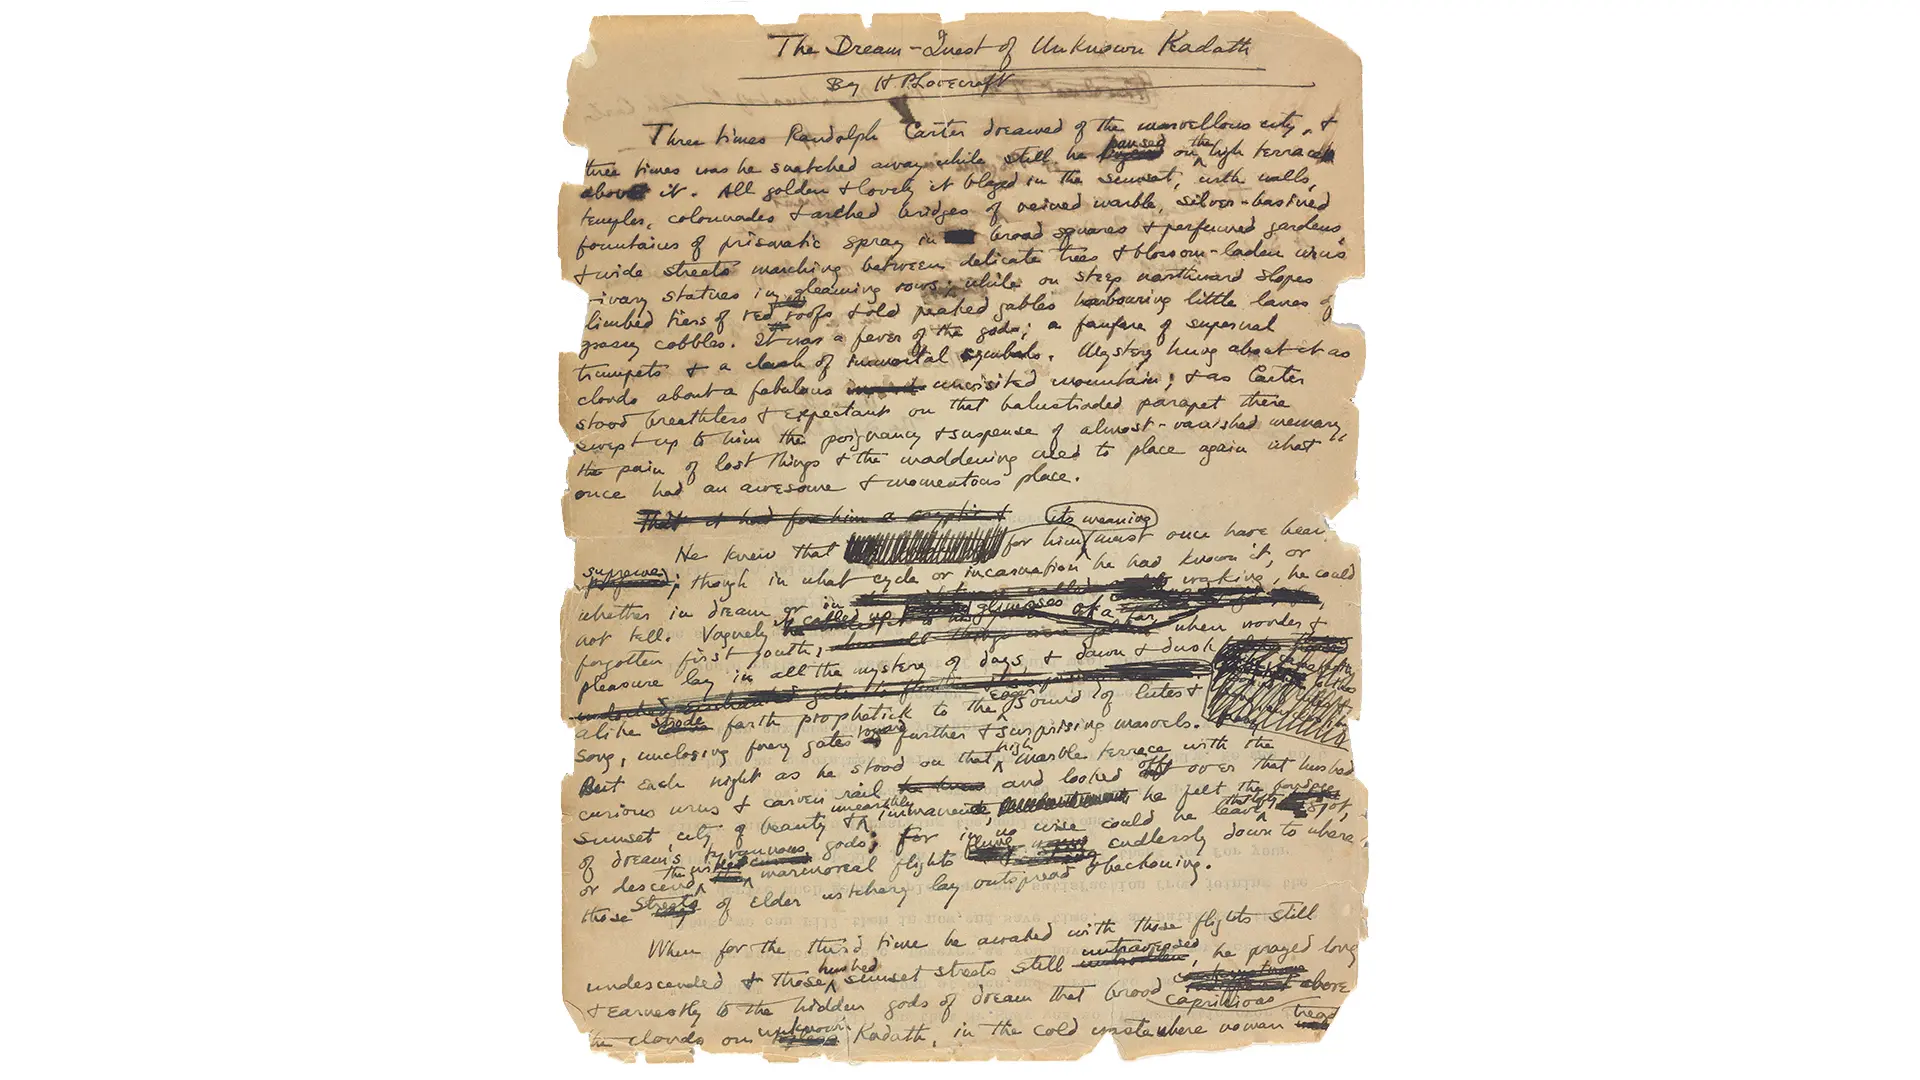 The Dream-Quest of Unknown Kadath
By H P Lovecraft
Three times Randolph Carter dreamed of the marvellous city, &
three times was he snatched away while still he paused on the high terrace
above it. All golden & lovely it blazed in the sunset, with walls,
temples, colonnades & arched bridges of veined marble, silver-basined
fountains of prismatic spray in broad squares & perfumed gardens,
& wide streets marching between delicate trees & blossom-laden urns
ivory statues in gleaming rows; while on steep northward slopes
limbed tiers of red roofs & old peaked gables harbouring little lanes of
grassy cobbles. It was a fever of the gods; a fanfare of supernal
trumpets & a clash of immortal cymbals. Mystery hung about it as
clouds about a fabulous unvisited mountain; & as Carter
stood breathless & expectant on that balustraded parapet there
swept up to him the poignancy & suspense of almost-vanished memory,
the pain of lost things & the maddening need to place again what
once had an awesome & momentous place.
That it had for him a cryptic &
its meaning
He knew that for him must once have been
supreme; though in what cycle or incarnation he had known it, or
whether in dream or in waking, he could
not tell. Vaguely it called up glimpses of a far,
forgotten first youth, when wonder &
pleasure lay in all the mystery of days, & dawn & dusk
alike strode forth prophetick to the eager sound of lutes &
song, unclosing faery gates toward further & surprising marvels.
But each night as he stood on that high marble terrace with the
curious urns & carven rail and looked off over that hushed
sunset city of beauty & unearthly immanence, he felt the bondage
of dream's tyrannous gods; for in no wise could he leave that lofty spot,
or descend the wide marmoreal flights flung endlessly down to where
those streets of elder witchery lay outspread & beckoning.
When for the third time he awaked with those flights still
undescended & those hushed sunset streets still untraversed, he prayed long
& earnestly to the hidden gods of dream that brood capricious above
the clouds on unknown Kadath, in the cold waste where no man treads